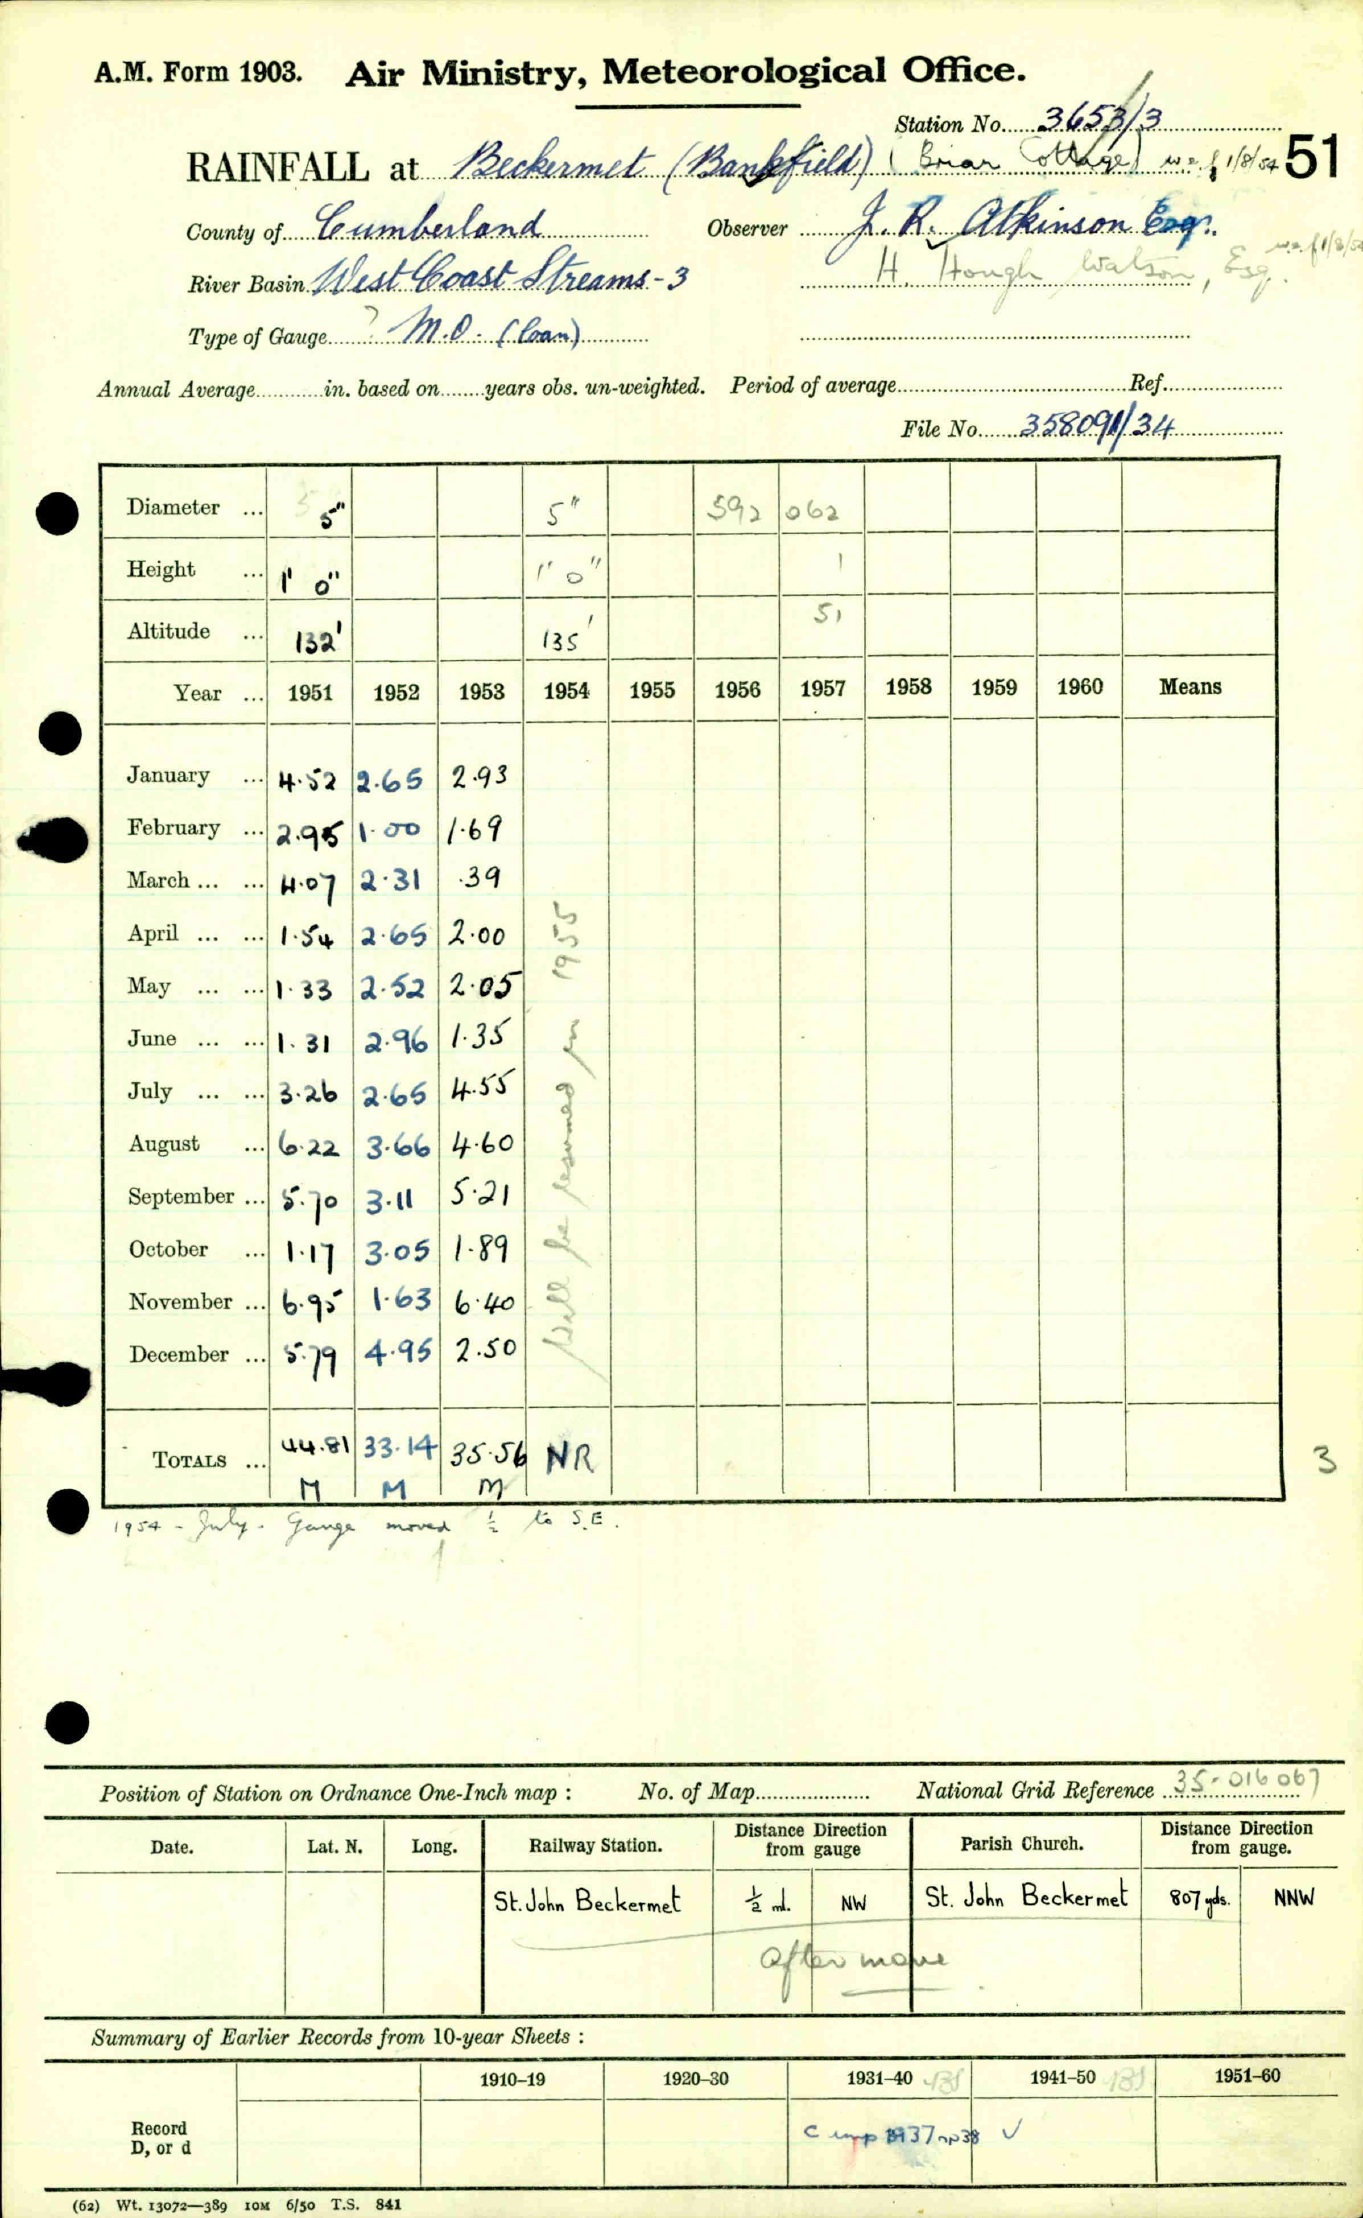 A.M. Form 1903. Air Ministry, Meteorological Office.
Station No. 3653/3
RAINFALL at Beckermet (Bankfield) (Briar Cottage) w.e.f 1/8/54 51
County of Cumberland Observer J. R. Atkinson Esq.
H. Hough Watson, Esq. w.e.f 1/8/54
River Basin West Coast Streams - 3
Type of Gauge ? M.O. (loan)
Annual Average in. based on years obs. un-weighted. Period of average Ref.
File No. 358091/34
Diameter ... 5" 5" 592 062
Height ... 1' 0" 1' 0" 1
Altitude ... 132' 135' 51
Year ... 1951 1952 1953 1954 1955 1956 1957 1958 1959 1960 Means
January ... 4.52 2.65 2.93
February ... 2.95 1.00 1.69
March ... ... 4.07 2.31 .39
April ... ... 1.54 2.65 2.00
May ... ... 1.33 2.52 2.05
June ... ... 1.31 2.96 1.35
July ... ... 3.26 2.65 4.55
August ... 6.22 3.66 4.60
September ... 5.70 3.11 5.21
October ... 1.17 3.05 1.89
November ... 6.95 1.63 6.40
December ... 5.79 4.95 2.50
Will be resumed in 1955
TOTALS ... 44.81 33.14 35.56 NR
M M M
3
1954 - July. Gauge moved ½ to S.E.
Position of Station on Ordnance One-Inch map : No. of Map National Grid Reference 35-016067
Date. Lat. N. Long. Railway Station. Distance Direction from gauge Parish Church. Distance Direction from gauge.
St. John Beckermet ½ ml. NW St. John Beckermet 807 yds. NNW
after move
Summary of Earlier Records from 10-year Sheets :
1910–19 1920–30 1931–40 1941–50 1951–60
Record
D, or d
1937 38 ✓
(62) Wt. 13072—389 10M 6/50 T.S. 841